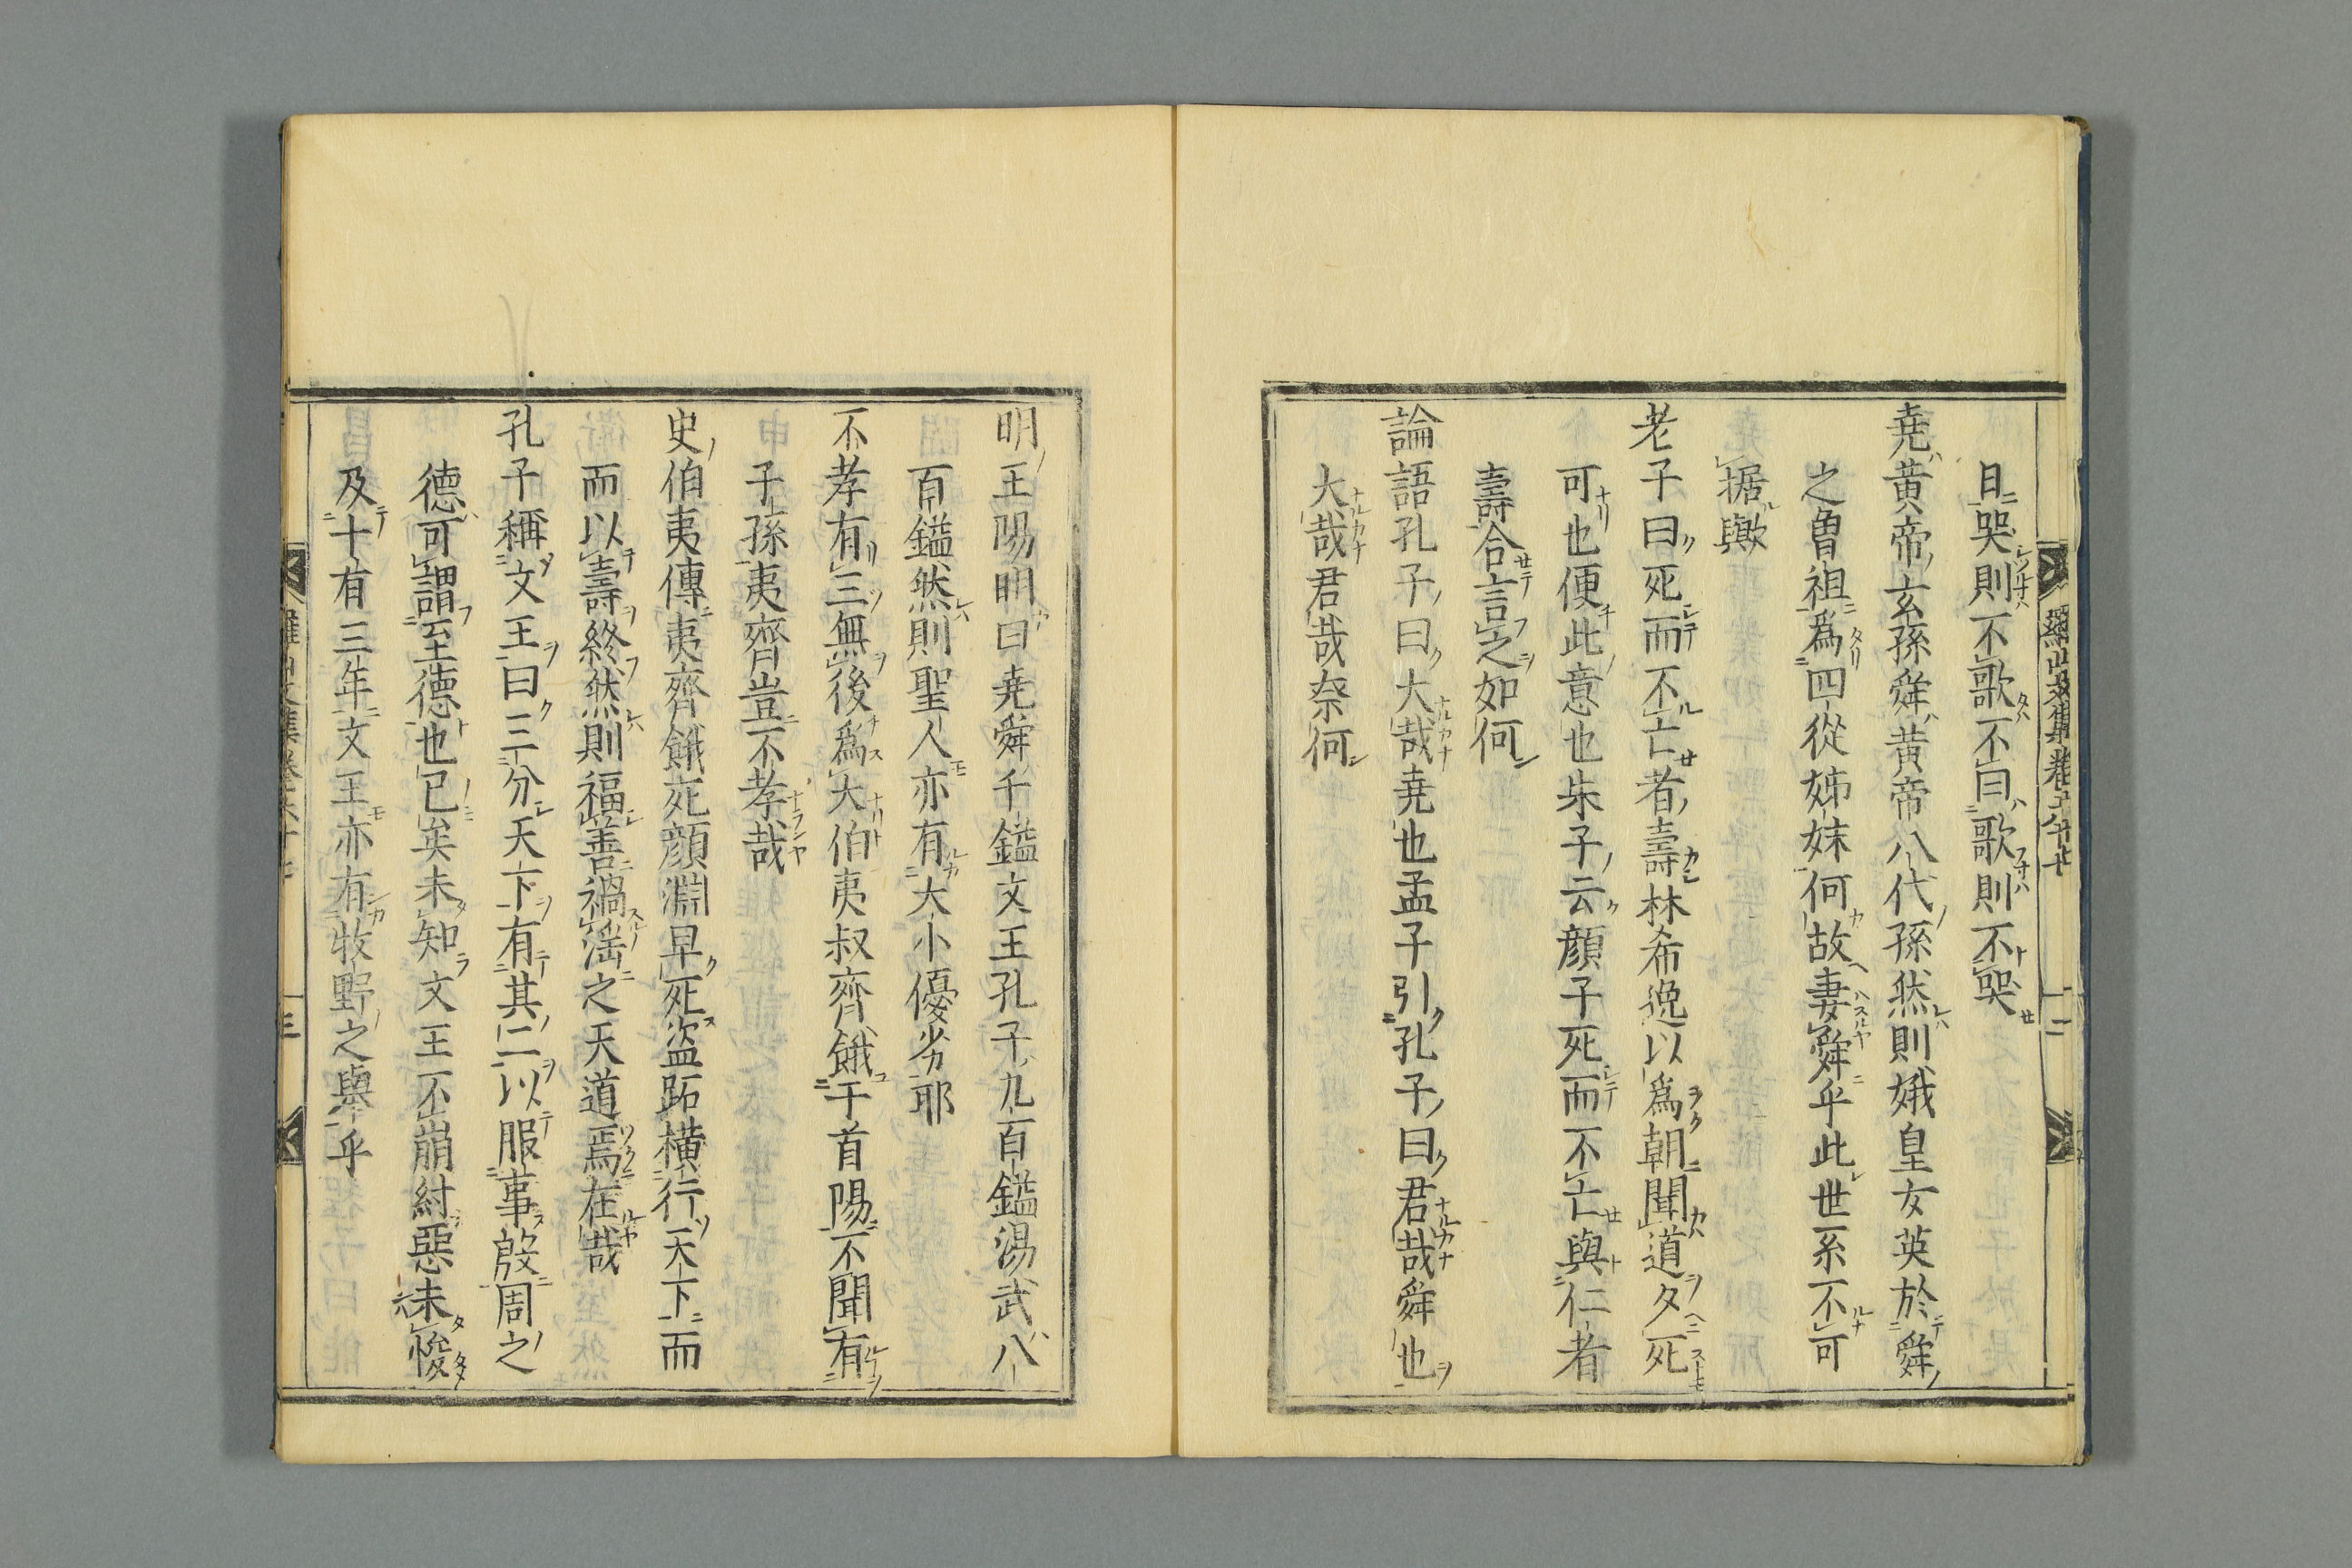 日哭則不歌不曰歌則不哭
堯黃帝玄孫舜黃帝八代孫然則娥皇女英於舜
之曾祖爲四從姊妹何故妻舜乎此世系不可
据歟
老子曰死而不亡者壽林希逸以爲朝聞道夕死
可也便此意也朱子云顔子死而不亡與仁者
壽合言之如何
論語孔子曰大哉堯也孟子引孔子曰君哉舜也
大哉君哉奈何
明王陽明曰堯舜千鎰文王孔子九百鎰湯武八
百鎰然則聖人亦有大小優劣耶
不孝有三無後爲大伯夷叔齊餓于首陽不聞有
子孫夷齊豈不孝哉
史伯夷傳夷齊餓死顔淵早死盗跖横行天下而
而以壽終然則福善禍淫之天道焉在哉
孔子稱文王曰三分天下有其二以服事殷周之
德可謂至德也已矣未知文王不崩紂惡未悛
及十有三年文王亦有牧野之舉乎